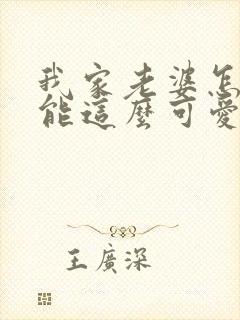 我家老婆怎
能這麼可愛
王廣深